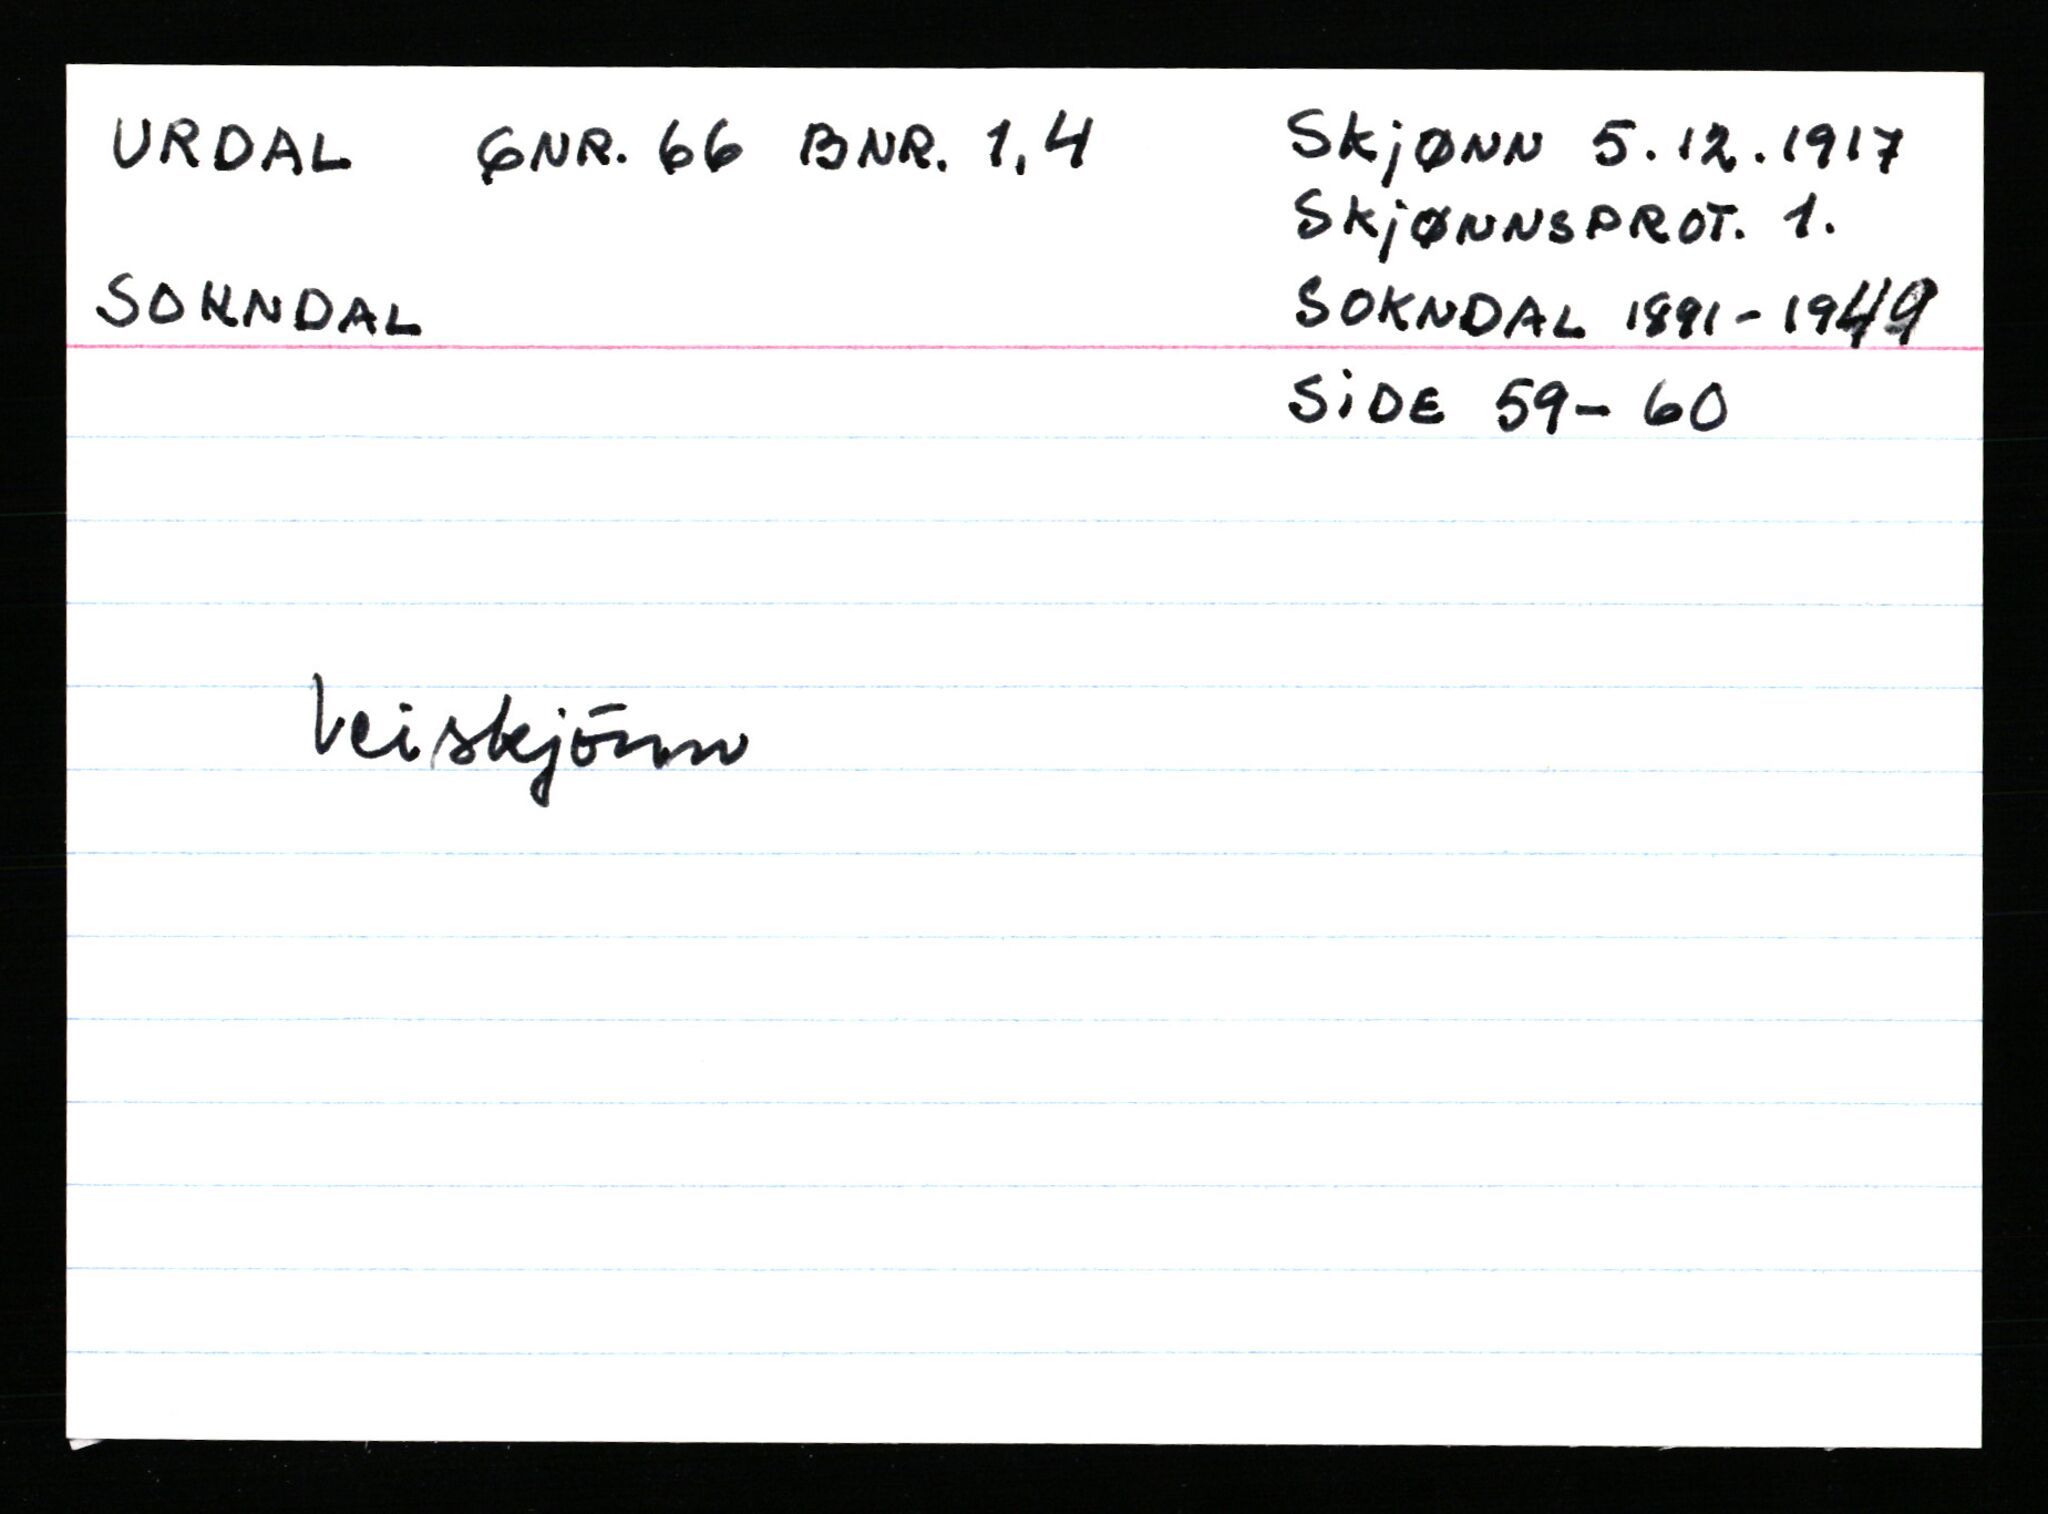 URDAL GNR. 66 BNR. 1,4
SOKNDAL
Skjønn 5.12.1917
Skjønnsprot. 1.
SOKNDAL 1891-1949
SiDE 59-60
Veiskjönn